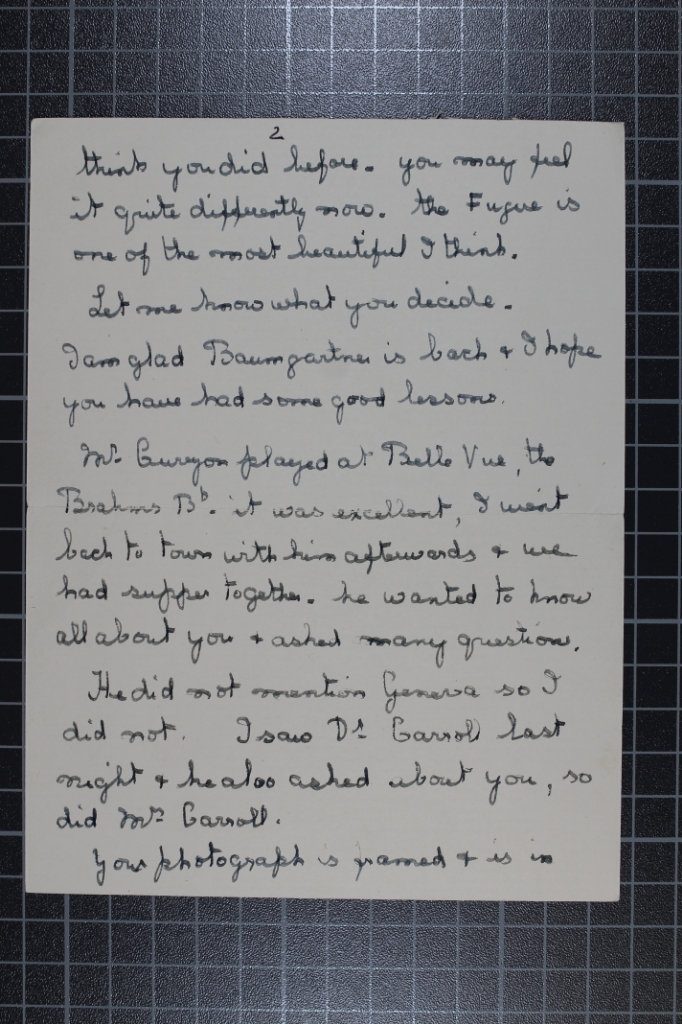 2
think you did before. you may feel
it quite differently now. the Fugue is
one of the most beautiful I think.
Let me know what you decide.
I am glad Baumgartner is back & I hope
you have had some good lessons.
Mr. Curzon played at Belle Vue, the
Brahms Bb. it was excellent, I went
back to town with him afterwards & we
had supper together. he wanted to know
all about you & asked many question.
He did not mention Geneva so I
did not. I saw Dr Carroll last
night & he also asked about you, so
did Mrs Carroll.
Your photograph is framed & is in